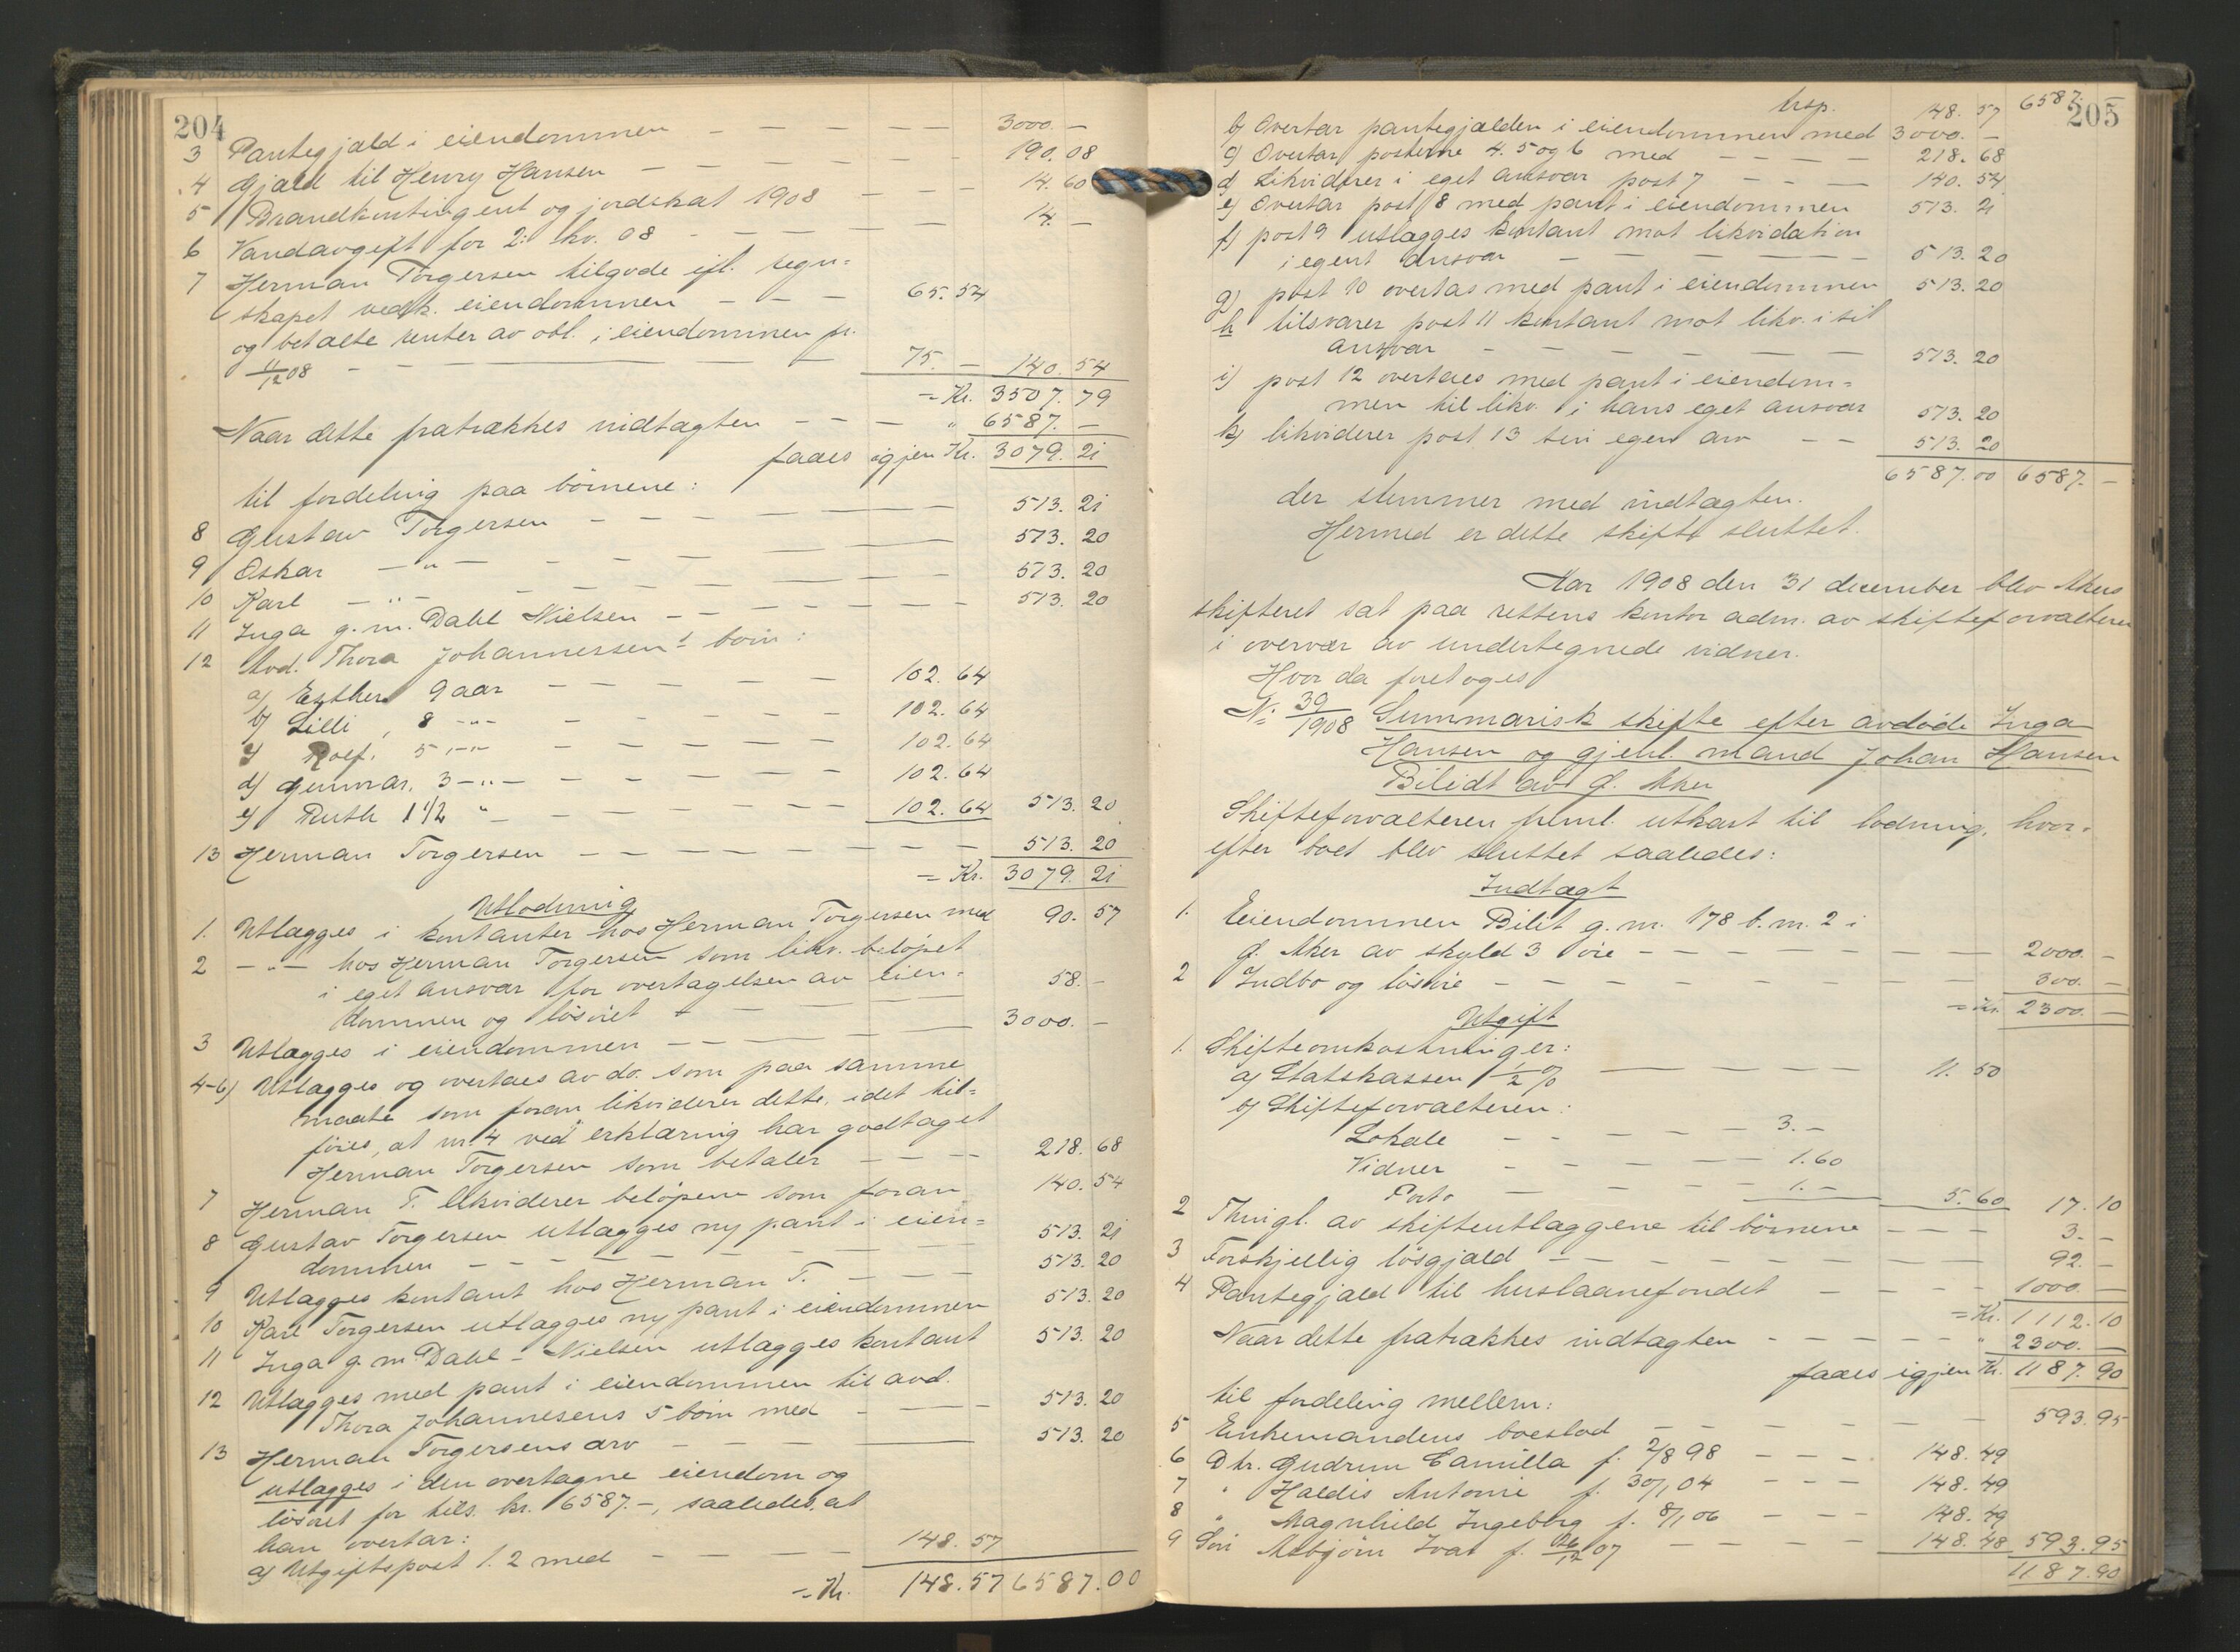 204
3 Pantegjæld i eiendommen — — — — — 3000. —
4 Gjæld til Henry Hansen — — — — — 190. 08
5 Brandkontingent og jordskat 1908 — — — 14. 60
6 Vandavgift for 2. kv. 08 — — — — — 14. —
7 Herman Torgersen tilgode ifl. regn=
skapet vedk. eiendommen — — — 65. 54
og betalte renter av obl. i eiendommen pr.
11/12 08 — — — — 75. — 140. 54
= Kr. 3507. 79
Naar dette fratrækkes indtægten — — — " 6587. —
faaes igjen Kr. 3079. 21
til fordeling paa børnene:
8 Gustav Torgersen — — — — — 513. 21
9 Oskar — " — — — — — 513. 20
10 Karl — " — — — — — 513. 20
11 Inga g. m. Dahl Nielsen — — — — — 513. 20
12 Avd. Thora Johannessens børn:
a) Esther 9 aar — — — — — 102. 64
b) Lilli, 8 — " — — — — — 102. 64
c) Rolf, 5 — " — — — — — 102. 64
d) Gunnar, 3 — " — — — — — 102. 64
e) Ruth 1 1/2 " — — — — — 102. 64 513. 20
13 Herman Torgersen — — — — — 513. 20
= Kr. 3079. 21
Utlodning
1. Utlægges i kontanter hos Herman Torgersen med 90. 57
2 — " — hos Herman Torgersen som likv. beløpet
i eget ansvar for overtagelsen av eien=
dommen og løsøret — — — 58. —
3 Utlægges i eiendommen — — — — 3000. —
4-6) Utlægges og overtaes av do. som paa samme
maate som foran likviderer dette, idet til=
føies, at nr. 4 ved erklæring har godtaget
Herman Torgersen som betaler — — — 218. 68
7 Herman T. likviderer beløpene som foran 140. 54
8 Gustav Torgersen utlægges ny pant i eien=
dommen — — — — — 513. 21
9 Utlægges kontant hos Herman T. — — — 513. 20
10 Karl Torgersen utlægges ny pant i eiendommen 513. 20
11 Inga g. m. Dahl-Nielsen utlægges kontant 513. 20
12 Utlægges med pant i eiendommen til avd.
Thora Johannesens 5 børn med — — — 513. 20
13 Herman Torgersens arv — — — — 513. 20
utlægges i den overtagne eiendom og
løsøret for tils. kr. 6587. —, saaledes, at
han overtar:
a) Utgiftspost 1. 2 med — — — — 148. 57
= Kr. 148. 57 6587. 00
205
trsp. 148. 57 6587. —
b) Overtar pantegjælden i eiendommen med 3000. —
c) Overtar posterne 4. 5 og 6 med — — — — 218. 68
d) Likviderer i eget ansvar post 7 — — — 140. 54
e) Overtar post 8 med pant i eiendommen 513. 21
f) post 9 utlægges kontant mot likvidation
i eget ansvar — — — — — 513. 20
g) post 10 overtas med pant i eiendommen 513. 20
h tilsvarer post 11 kontant mot likv. i sit
ansvar — — — — — 513. 20
i) post 12 overtaes med pant i eiendom=
men til likv. i hans eget ansvar 513. 20
k) likviderer post 13 sin egen arv — — 513. 20
6587. 00 6587. —
der stemmer med indtægten.
Hermed er dette skifte sluttet.
Aar 1908 den 31 december blev Akers
skifteret sat paa rettens kontor adm. av skifteforvalteren
i overvær av undertegnede vidner.
Hvor da foretoges
No 39/1908 Summarisk skifte efter avdøde Inga
Hansen og gjenl. mand Johan Hansen
Bilidt av Ø. Aker
Skifteforvalteren freml. utkast til lodning, hvor=
efter boet blev sluttet saaledes:
Indtægt
1. Eiendommen Bilit g. nr. 178 b. nr. 2 i
Ø. Aker av skyld 3 øre — — — — 2000. —
2 Indbo og løsøre — — — — — 300. —
= Kr. 2300. —
Utgift
1. Skifteomkostninger:
a) Statskassen 1/2 % — — — 11. 50
b) Skifteforvalteren:
Lokale — — — — 3. —
Vidner — — — — 1. 60
Porto — — — — 1. — 5. 60 17. 10
2 Thingl. av skifteutlæggene til børnene — — — 3. —
3 Forskjellig løsgjæld — — — — — 92. —
4 Pantegjæld til huslaanefondet — — — — 1000. —
= Kr. 1112. 10
Naar dette fratrækkes indtægten — — — — " 2300. —
faaes igjen Kr. 1187. 90
til fordeling mellem:
5 Enkemandens boeslod — — — — — 593. 95
6 Dtr. Gudrun Camilla f. 2/8 98 — — — 148. 49
7 " Haldis Antonie f. 30/1 04 — — — 148. 49
8 " Magnhild Ingeborg f. 8/1 06 — — — 148. 49
9 Søn Asbjørn Ivar f. 26/12 07 — — — 148. 48 593. 95
1187. 90